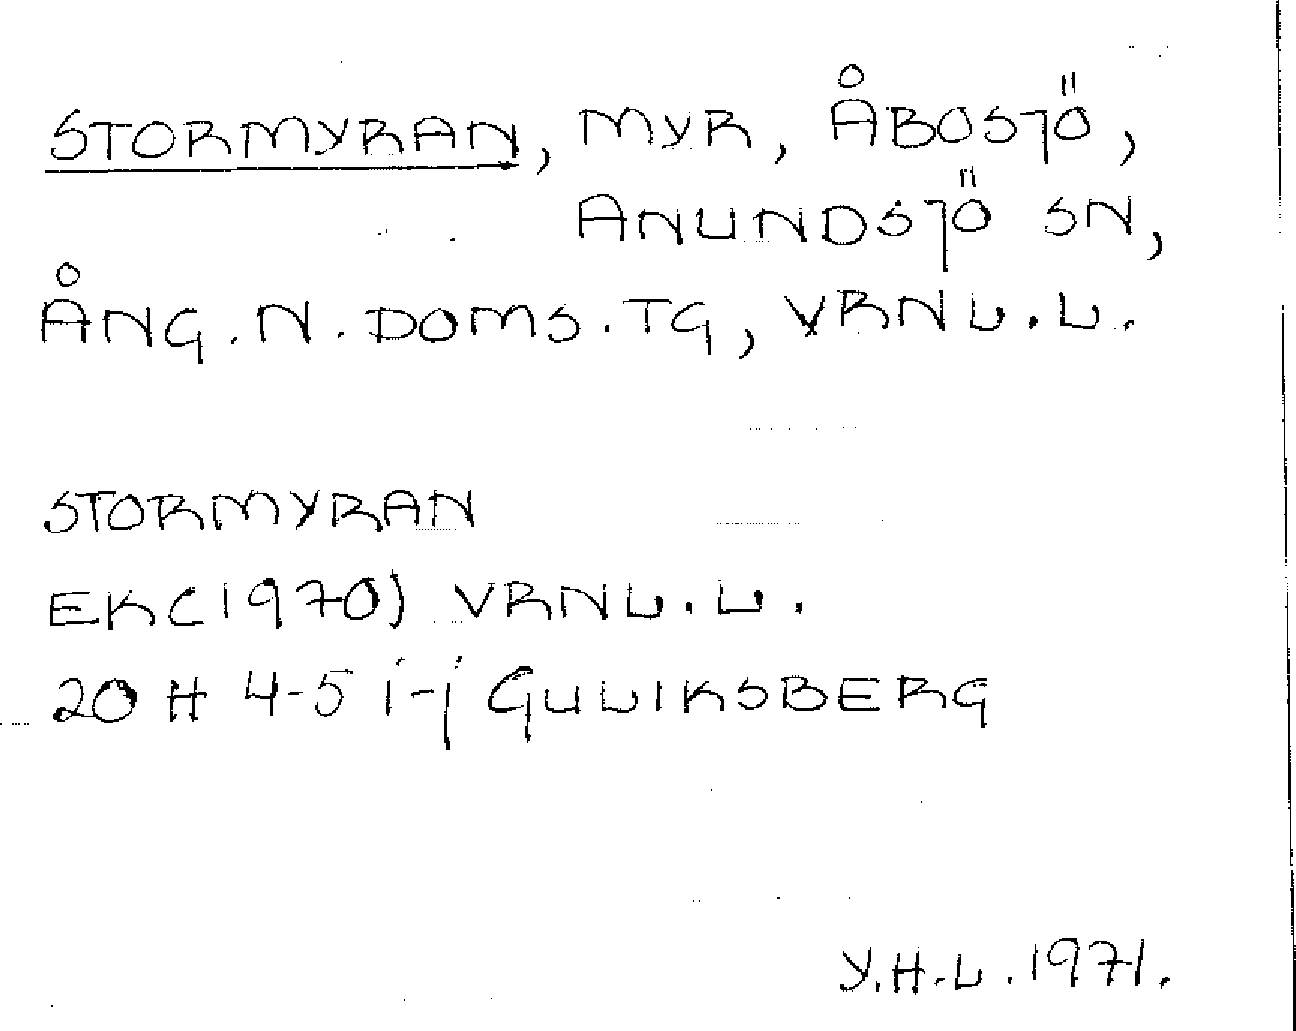 STORMYRAN, MYR, ÅBOSJÖ,
ANUNDSJÖ SN,
ÅNG. N. DOMS. TG, VRNL. L.
STORMYRAN
EK(1970) VRNL. L.
20 H 4-5 i-j GULIKSBERG
Y.H.L. 1971.